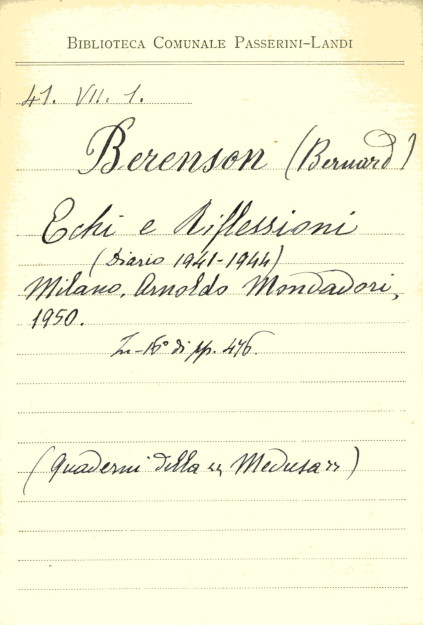 BIBLIOTECA COMUNALE PASSERINI-LANDI
41. VII. 1.
Berenson (Bernard)
Echi e Riflessioni
(Diario 1941-1944)
Milano, Arnoldo Mondadori,
1950.
In-16° di pp. 476.
(Quaderni della „ Medusa ")